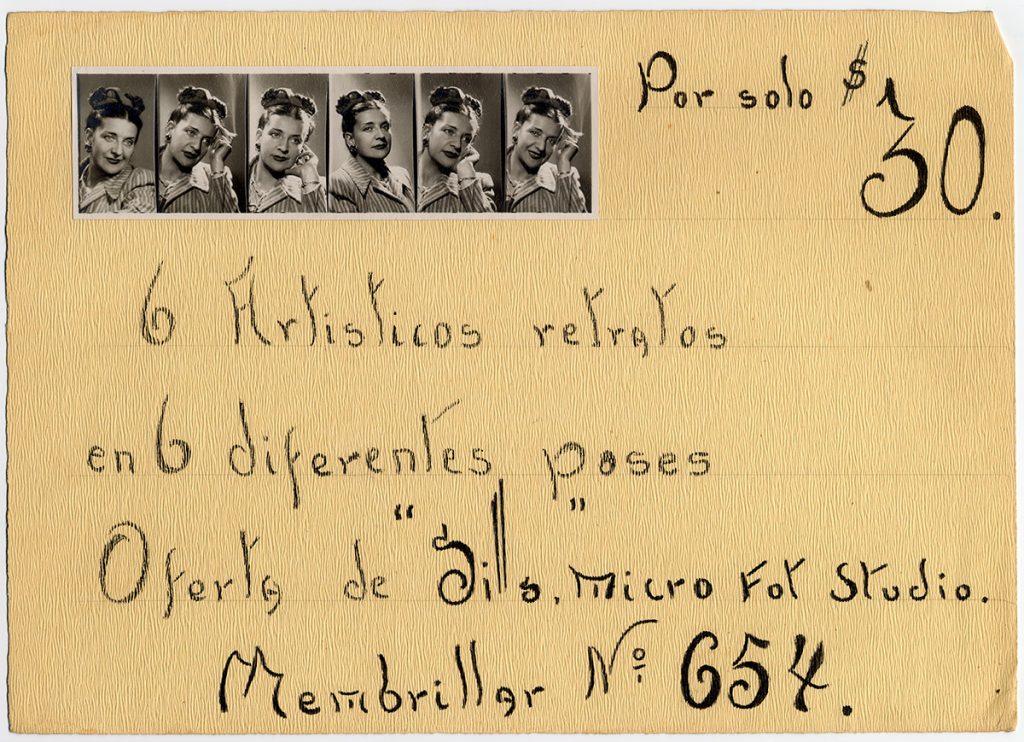 Por solo $ 30.
6 Artisticos retratos
en 6 diferentes poses
Oferta de "Sills. Micro Fot Studio."
Membrillar Nº 654.